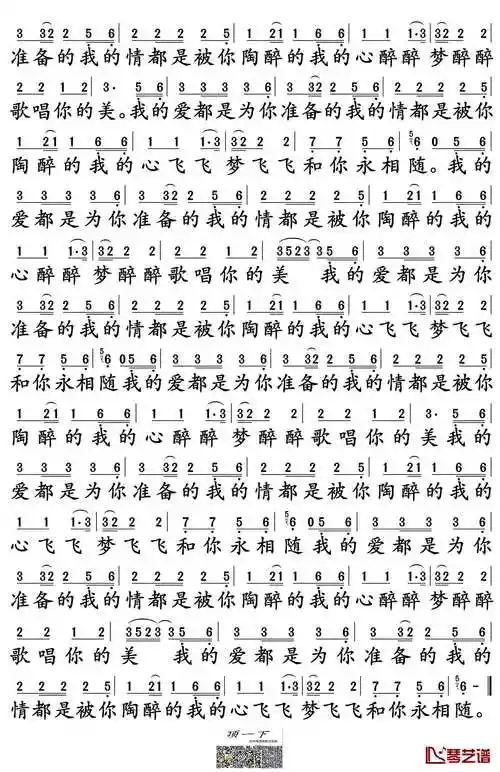 3 32 2 5 6 | 2 2 2 2 5 | 1 21 1 6 6 | 1 1 1·3 | 32 2 2
准备的我的情都是被你陶醉的我的心醉醉 梦醉醉
2 2 1 2 | 3· 5 6 | 3 3 3 3 6 | 3 32 2 5 6 | 2 2 2 2 5
歌唱你的美。我的爱都是为你准备的我的情都是被你
1 21 1 6 6 | 1 1 1·3 | 32 2 2 | 7 7 5 6 | 6 0 5 6
陶醉的我的心飞飞 梦飞飞和你永相随。我的
3 3 3 3 6 | 3 32 2 5 6 | 2 2 2 2 5 | 1 21 1 6 6
爱都是为你准备的我的情都是被你陶醉的我的
1 1 1·3 | 32 2 2 | 2 2 1 2 | 3523 35 5 6 | 3 3 3 3 6
心醉醉梦醉醉歌唱你的美 我的爱都是为你
3 32 2 5 6 | 2 2 2 2 5 | 1 21 1 6 6 | 1 1 1·3 | 32 2 2
准备的我的情都是被你陶醉的我的心飞飞梦飞飞
7 7 5 6 | 6 05 6 | 3 3 3 3 6 | 3 32 2 5 6 | 2 2 2 2 5
和你永相随我的爱都是为你准备的我的情都是被你
1 21 1 6 6 | 1 1 1·3 | 32 2 2 | 2 2 1 2 | 3· 5 6
陶醉的我的心醉醉梦醉醉歌唱你的美我的
3 3 3 3 6 | 3 32 2 5 6 | 2 2 2 2 5 | 1 21 1 6 6
爱都是为你准备的我的情都是被你陶醉的我的
1 1 1·3 | 32 2 2 | 7 7 5 6 | 6 05 6 | 3 3 3 3 6
心飞飞梦飞飞和你永相随我的爱都是为你
3 32 2 5 6 | 2 2 2 2 5 | 1 21 1 6 6 | 1 1 1·3 | 32 2 2
准备的我的情都是被你陶醉的我的心醉醉梦醉醉
2 2 1 2 | 3523 35 5 6 | 3 3 3 3 6 | 3 32 2 5 6
歌唱你的美 我的爱都是为你准备的我的
2 2 2 2 5 | 1 21 1 6 6 | 1 1 1·3 | 32 2 2 | 7 7 5 6 | 6 -
情都是被你陶醉的我的心飞飞梦飞飞和你永相随。
顶一下
琴艺谱